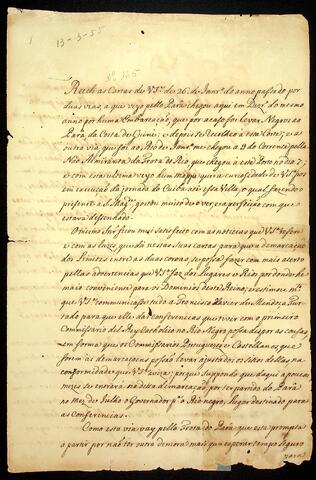 13-3-55
Nº 165
Recebi as Cartas de VSª de 26 de Janrº do anno passado por
duas vias, a que veyo pello Pará chegou aqui em Dezrº do mesmo
anno por huma Embarcação, que por acaso foi levar Negros ao
Pará, da Costa de Guiné; e depois se recolheo a esta Corte; e a
outra via que foi ao Rio de Janrº me chegou a 9 do Corrente pella
Náo Almiranta da Frota do Rio que chegou a este Porto no dia 7; e
com esta ultima veyo hum mappa que a curiosidade de VSª fes
em execução da jornada do Cuiabá até essa Villa, o qual fazendo
prezente a S. Magde gostou muito de o ver, e a perfeição com que
estava desenhado.
O mesmo Snr ficou mui satisfeito com as noticias que VSª refere
e com as luzes que dá nessas suas cartas para que a demarcação
dos Limites entre as duas coroas, se possa fazer com mais acerto
pellas adverténcias que VSª faz dos Lugares e Rios por donde he
mais conveniente para os Dominios deste Reino; e estimou mtº
que VSª communicasse tudo a Francisco Xavier de Mendoça Fur-
tado para que elle nas conferencias que tiver com o primeiro
Commissario del Rey Catholico no Rio Negro possa dispor as cousas
em forma que os Commissarios Portuguezes e Castelhanos que
forem ás demarcações possão levar ajustados os sitios dellas na
conformidade que VSª avisa; porque supponho que daqui a poucos
mezes se entrará na dita demarcação, por ter partido do Pará
no mez de Julho o Governador pª o Rio negro, lugar destinado para
as Conferencias.
Como esta via vay pella Frota do Pará que está prompta
a partir por não ter outra demora mais que esperar tempo seguro